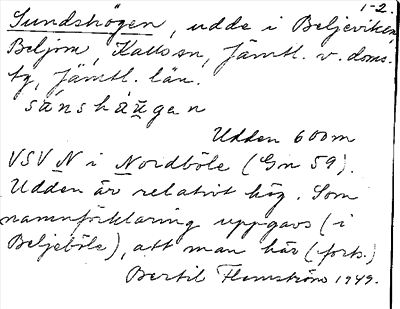 1-2
Sundshögen, udde i Beljeviken,
Beljom, Kalls sn, Jämtl. v. doms.
tg, Jämtl. län.
Udden 600m
VSV N i Nordböle (Gn 59).
Udden är relativt hög. Som
namnförklaring uppgavs (i
Beljeböle), att man här (forts.)
Bertil Flemström 1949.